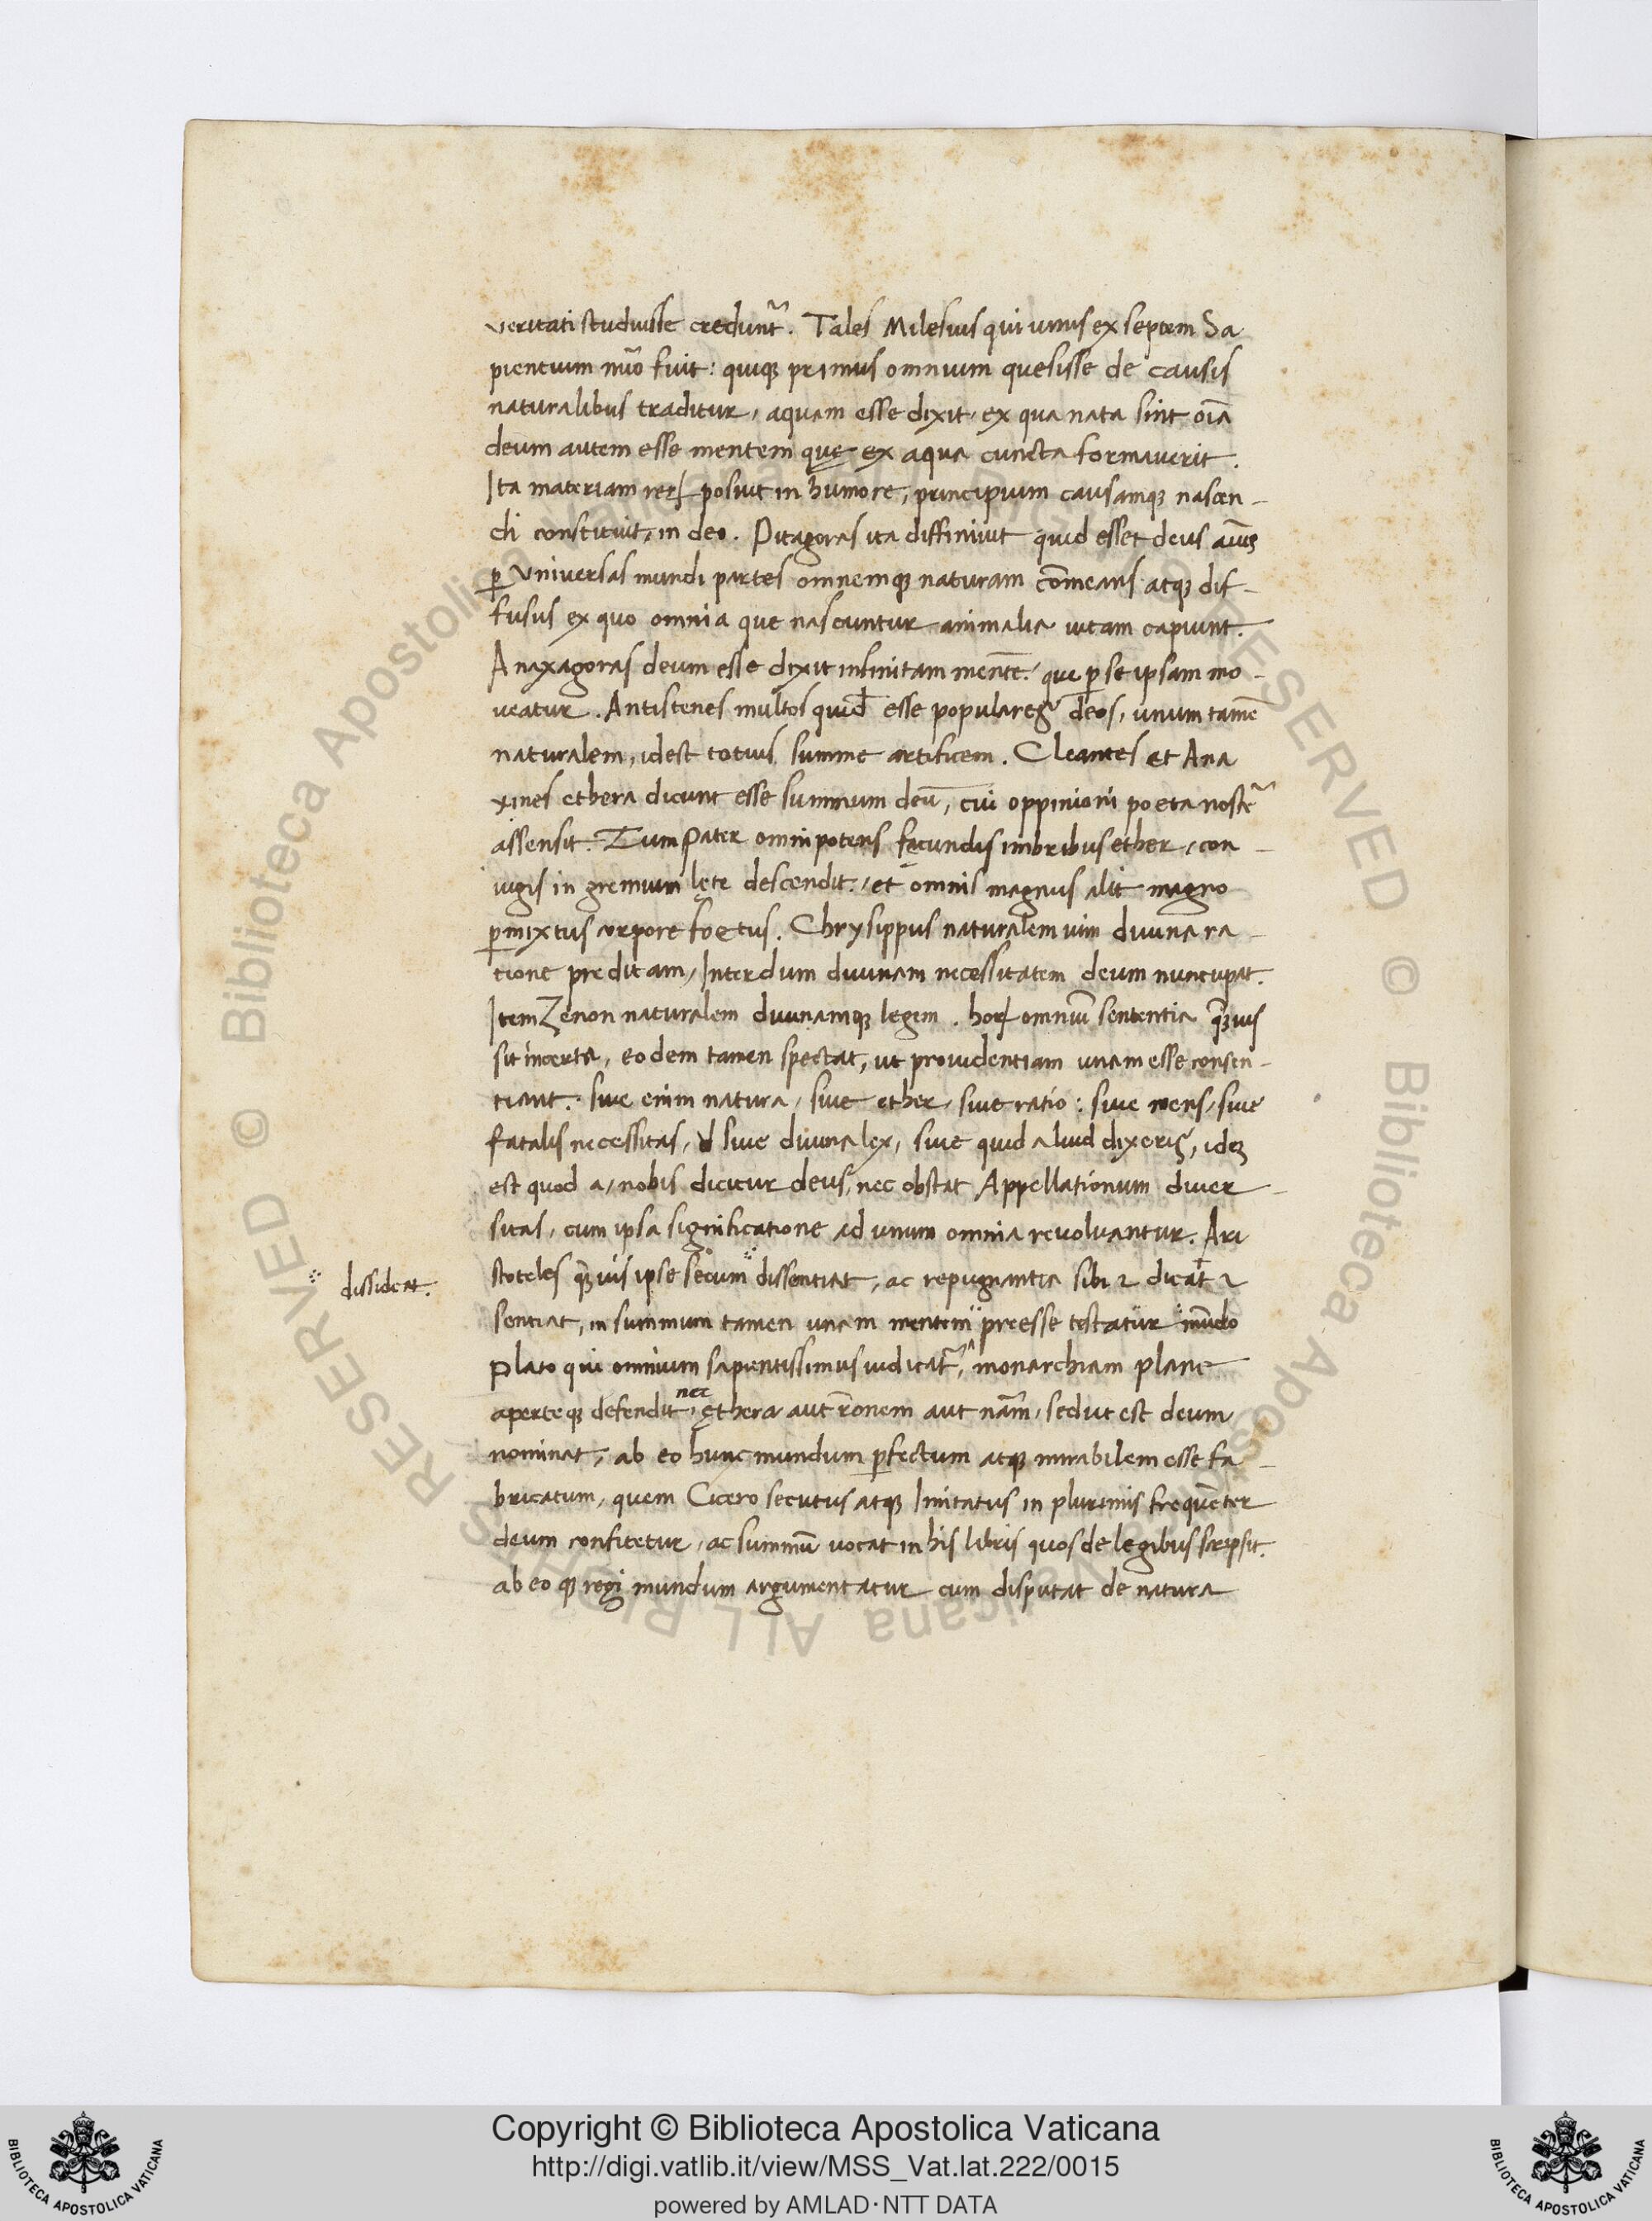 veritati studuisse creduntᷣ. Tales Milesius qui unus ex septem Sa
pientum nũo fuit: quiqꝫ primus omnium quesisse de causis
naturalibus traditur, aquam esse dixit, ex qua nata sint oĩa
deum autem esse mentem que ex aqua cuncta formaverit.
Ita materiam reꝝ posuit in humore, principium causamqꝫ nascen-
di constituit, in deo. Pitagoras ita diffinivit quid esset deus aĩus
ꝑ universas mundi partes omnemqꝫ naturam cõmeans atqꝫ dif-
fusus ex quo omnia que nascuntur animalia vitam capiunt.
Anaxagoras deum esse dixit infinitam mentẽ, que ꝑ se ipsam mo-
veatur. Antistenes multos quid̃ esse populares deos, unum tamẽ
naturalem, idest totius summe artificem. Cleantes et Ana
xines ethera dicunt esse summum deũ, cui oppinioni poeta nosteᷣ
assensit. Tum Pater omnipotens fęcundis imbribus ether, con-
iugis in gremium lęte descendit, et omnis magnus alit magno
ꝑmixtus corpore foetus. Chrysippus naturalem vim divina ra-
tione preditam, Interdum divinam necessitatem deum nuncupat.
Item Zenon naturalem divinamqꝫ legem. hoꝝ omniũ sententia q̃ꝫvis
sit incerta, eodem tamen spectat, ut providentiam unam esse consen-
tiant. sive enim natura, sive ether, sive ratio: sive mens, sive
fatalis necessitas, sive divina lex, sive quid aliud dixeris, idẽ
est quod a, nobis dicitur deus, nec obstat Appellationum diver-
sitas, cum ipsa significatione ad unum omnia revolvantur. Ari
stoteles q̃ꝫvis ipse secum dissentiat, ac repugnantia sibi ⁊ dicat ⁊
dissideat.
sentiat, in summum tamen unam mentem preesse testatur mũdo
Plato qui omnium sapientissimus iudicatᷣ, monarchiam plane
nec
aperteqꝫ defendit, ęthera aut rõnem aut nãm, sed ut est deum
nominat, ab eo hunc mundum ꝑfectum atqꝫ mirabilem esse fa-
bricatum, quem Cicero secutus atqꝫ Imitatus in plurimis frequẽter
deum confitetur, ac summũ vocat in his libris quos de legibus scripsit.
ab eo qꝫ regi mundum argumentatur cum disputat de natura
Copyright © Biblioteca Apostolica Vaticana
http://digi.vatlib.it/view/MSS_Vat.lat.222/0015
powered by AMLAD·NTT DATA
BIBLIOTECA APOSTOLICA VATICANA
BIBLIOTECA APOSTOLICA VATICANA